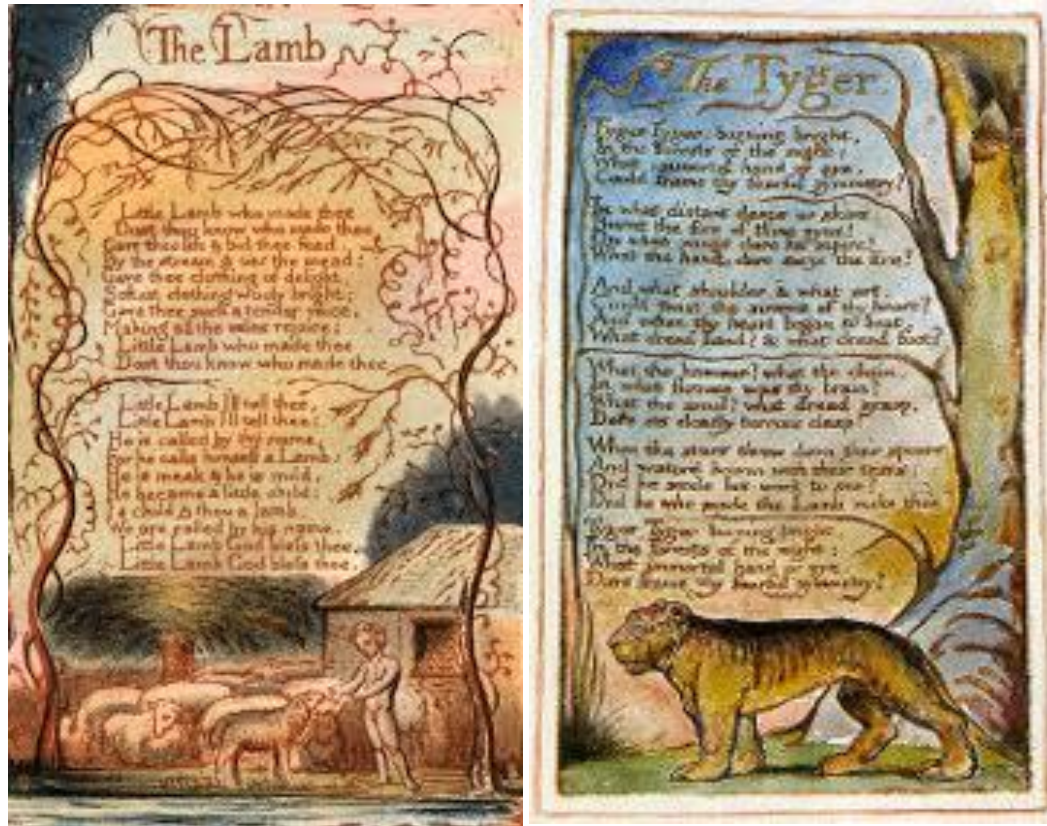 The Lamb
Little Lamb who made thee
Dost thou know who made thee
Gave thee life & bid thee feed.
By the stream & o'er the mead;
Gave thee clothing of delight,
Softest clothing wooly bright;
Gave thee such a tender voice,
Making all the vales rejoice:
Little Lamb who made thee
Dost thou know who made thee
Little Lamb I'll tell thee,
Little Lamb I'll tell thee:
He is called by thy name,
For he calls himself a Lamb:
He is meek & he is mild,
He became a little child:
I a child & thou a lamb,
We are called by his name.
Little Lamb God bless thee.
Little Lamb God bless thee.
The Tyger
Tyger Tyger, burning bright,
In the forests of the night:
What immortal hand or eye,
Could frame thy fearful symmetry?
In what distant deeps or skies
Burnt the fire of thine eyes?
On what wings dare he aspire?
What the hand, dare sieze the fire?
And what shoulder, & what art,
Could twist the sinews of thy heart?
And when thy heart began to beat,
What dread hand? & what dread feet?
What the hammer? what the chain,
In what furnace was thy brain?
What the anvil? what dread grasp,
Dare its deadly terrors clasp?
When the stars threw down their spears
And water'd heaven with their tears:
Did he smile his work to see?
Did he who made the Lamb make thee?
Tyger Tyger burning bright,
In the forests of the night:
What immortal hand or eye,
Dare frame thy fearful symmetry?